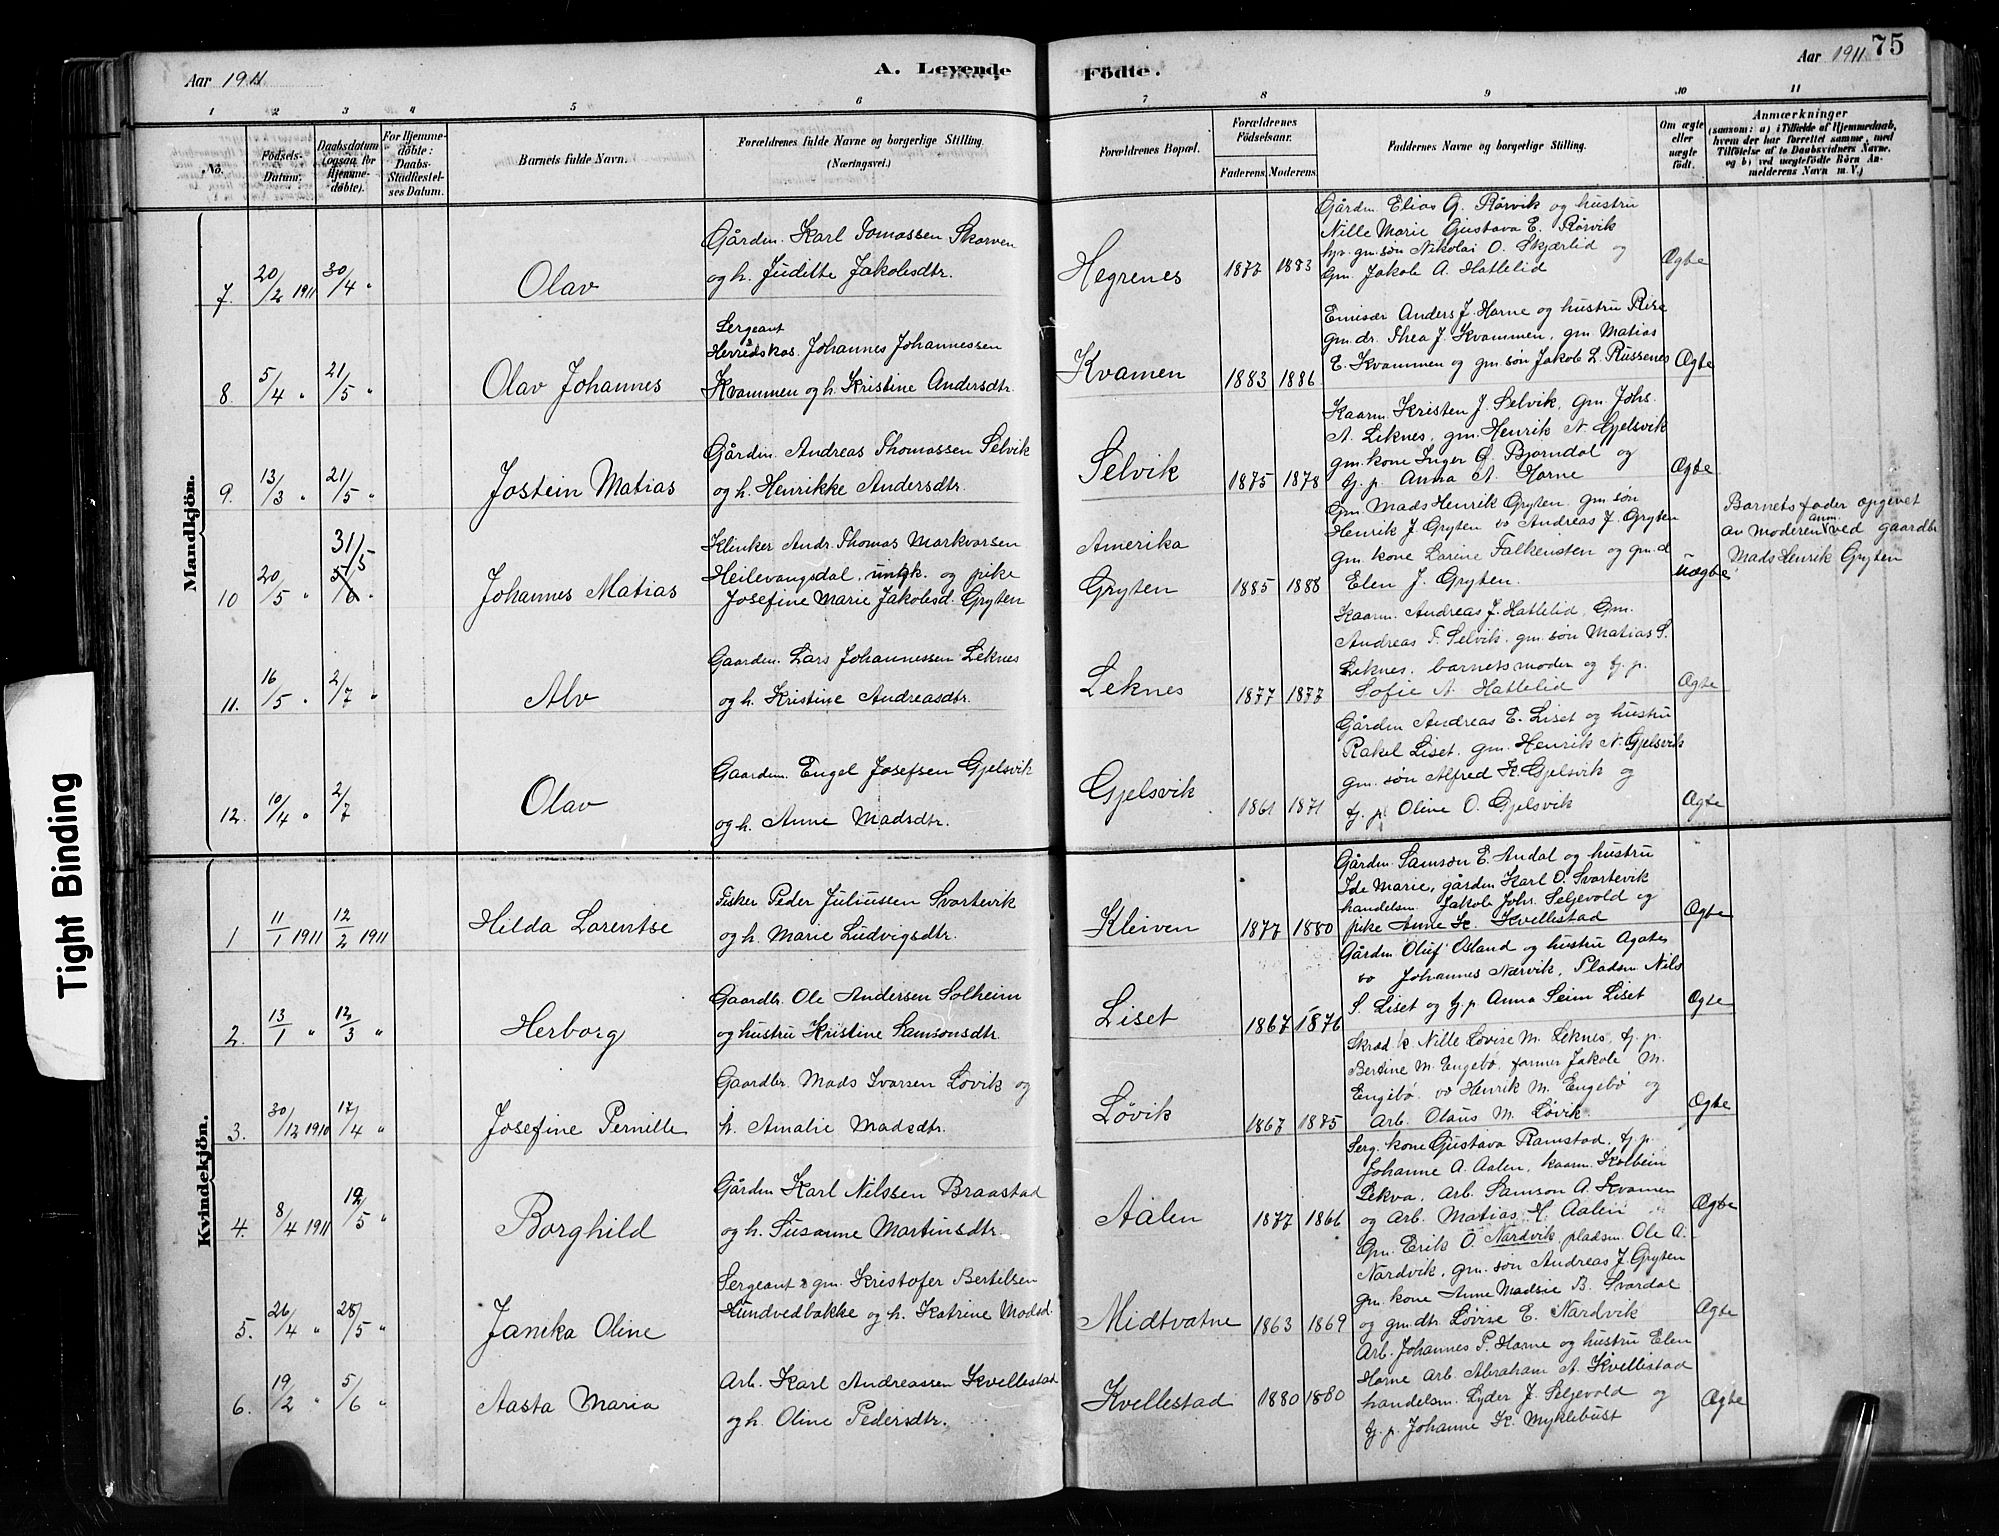 Aar 1911
A. Levende
Födte.
Aar 1911
75
1
2
3
4
5
6
7
8
9
10
11
No.
Födsels-
Datum.
Daabsdatum
(ogsaa for
Hjemme-
døbte).
For Hjemme-
döbte:
Daabs-
Stadfæstel-
ses Datum.
Barnets fulde Navn.
Forældrenes fulde Navne og borgerlige Stilling.
(Næringsvei.)
Forældrenes Bopæl.
Forældrenes
Födselsaar.
Faderens.
Moderens.
Faddernes Navne og borgerlige Stilling.
Om ægte
eller
uægte
födt.
Anmærkninger
(saasom: a) i Tilfælde af Hjemmedaab,
hvem der har forrettet samme, med
Tilföielse af to Daabsvidners Navne,
og b) ved uægtefödte Börn An-
melderens Navn m. V.)
Mandkjön.
7. 20/2 1911 30/4 "
Olav
Gårdm. Karl Tomassen Skorven
og h. Juditte Jakobsdtr.
Hegrenes
1877 1883
Gårdm Elias G. Rørvik og hustru
Nille Marie Gustava E. Rørvik
hjv. gm.søn Nikolai O. Skjærlid og
Gm. Jakob A. Hattelid
Ægte
8. 5/4 " 21/5 "
Olav Johannes
Sergeant
Herredskas. Johannes Johannessen
Kvammen og h. Kristine Andersdtr.
Kvamen
1883 1886
Emisær Anders J. Horne og hustru
gm. dr. Thea J. Kvammen, gm. Matias
E. Kvammen og gm søn Jakob L. Russenes
Ægte
9. 13/3 " 21/5 "
Jostein Matias
Gårdm. Andreas Thomassen Selvik
og h. Henrikke Andersdtr.
Selvik
1875 1878
Kaarm. Kristen J. Selvik, gm. Johs.
A. Leknes, gm. Henrik N. Gjelsvik
gm. kone Inger O. Bjørndal og
tj. p. Anna A. Horne
Ægte
10 20/5 " 31/5 "
Johannes Matias
Klinker Andr. Thomas Markvarsen
Heilevangsdal, ungk. og pike
Josefine Marie Jakobsd. Gryten
Amerika
Gryten
1885 1888
Gm. Mads Henrik Gryten, gm søn
Henrik J. Gryten " Andreas J. Gryten
gm. kone Larine Falkensten og gm. d
Elen J. Gryten.
uægte
Barnets fader opgivet
av moderen anm. ved gaardbr
Mads Henrik Gryten
11. 16/5 " 2/7 "
Alv
Gaardm. Lars Johannessen Leknes
og h. Kristine Andreasdtr.
Leknes
1877 1877
Kaarm. Andreas J. Hattelid, Gm.
Andreas T. Selvik, gm. søn Matias S.
Leknes, barnets moder og tj. p.
Sofie A. Hattelid
Ægte
12. 10/4 " 2/7
Olav
Gaardm. Engel Josefsen Gjelsvik
og h. Anne Madsdtr.
Gjelsvik
1861 1871
Gårdm Andreas E. Liset og hustru
Rakel Liset, gm. Henrik N. Gjelsvik
gm. søn Alfred K. Gjelsvik og
tj. p. Oline O. Gjelsvik
Ægte
Kvindekjön.
1 11/1 1911 12/2 1911
Hilda Lorentse
Fisker Peder Juliussen Svortevik
og h. Marie Ludvigsdtr.
Kleiven
1877 1880
Gårdm. Samson E. Andal og hustru
Ide Marie, gårdm Karl O. Svortevik
handelsm. Jakob Johs. Seljevold og
pike Anne K. Kvellestad
Ægte
2. 13/1 " 12/3 "
Herborg
Gaardbr. Ole Andersen Solheim
og hustru Kristine Samsonsdtr.
Liset
1867 1876
Gårdm. Oluf Osland og hustru Agate
" Johannes Nærvik, Pladsm. Nils
S. Liset og tj. p Anna Seim Liset
Ægte
3. 30/12 1910 17/4 "
Josefine Pernille
Gaardbr. Mads Ivarsen Løvik og
h. Amalie Madsdtr.
Løvik
1867 1875
Skræd. k. Nille Lovise M. Leknes, tj. p.
Bertine M. Engebø, farmer Jakob M.
Engebø, " Henrik M. Engebø og
Arb. Olaus M. Løvik
Ægte
4. 8/4 1911 12/5 "
Borghild
Gårdm Karl Nilssen Braastad
og h. Susanne Martinsdtr.
Aalen
1877 1866
Serg. kone Gustava Ramstad, tj. p.
Johanne A. Aalen, kaarm. Kolbein
Lekva, Arb. Samson A. Kvamen
og Arb. Matias H. Aalen
Ægte
5. 26/4 " 28/5 "
Janika Oline
Sergeant & gm. Kristofer Bertelsen
Lundvedbakke og h. Katrine Madsd.
Midtvatne
1863 1869
Gm. Erik O. Nardvik, pladsm. Ole A.
Nardvik, gm. søn Andreas J. Gryten
gm. kone Anne Madsie B. Svardal
og gm.dtr. Lovise E. Nardvik
Ægte
6. 19/2 " 5/6 "
Aasta Maria
Arb. Karl Andreassen Kvellestad
og h. Oline Pedersdtr.
Kvellestad
1880 1880
Arb. Johannes P. Horne og hustru Elen
Horne Arb. Abraham A. Kvellestad
handelsm. Lyder J. Seljevold og
tj. p. Johanne K. Myklebust
Ægte
Tight Binding